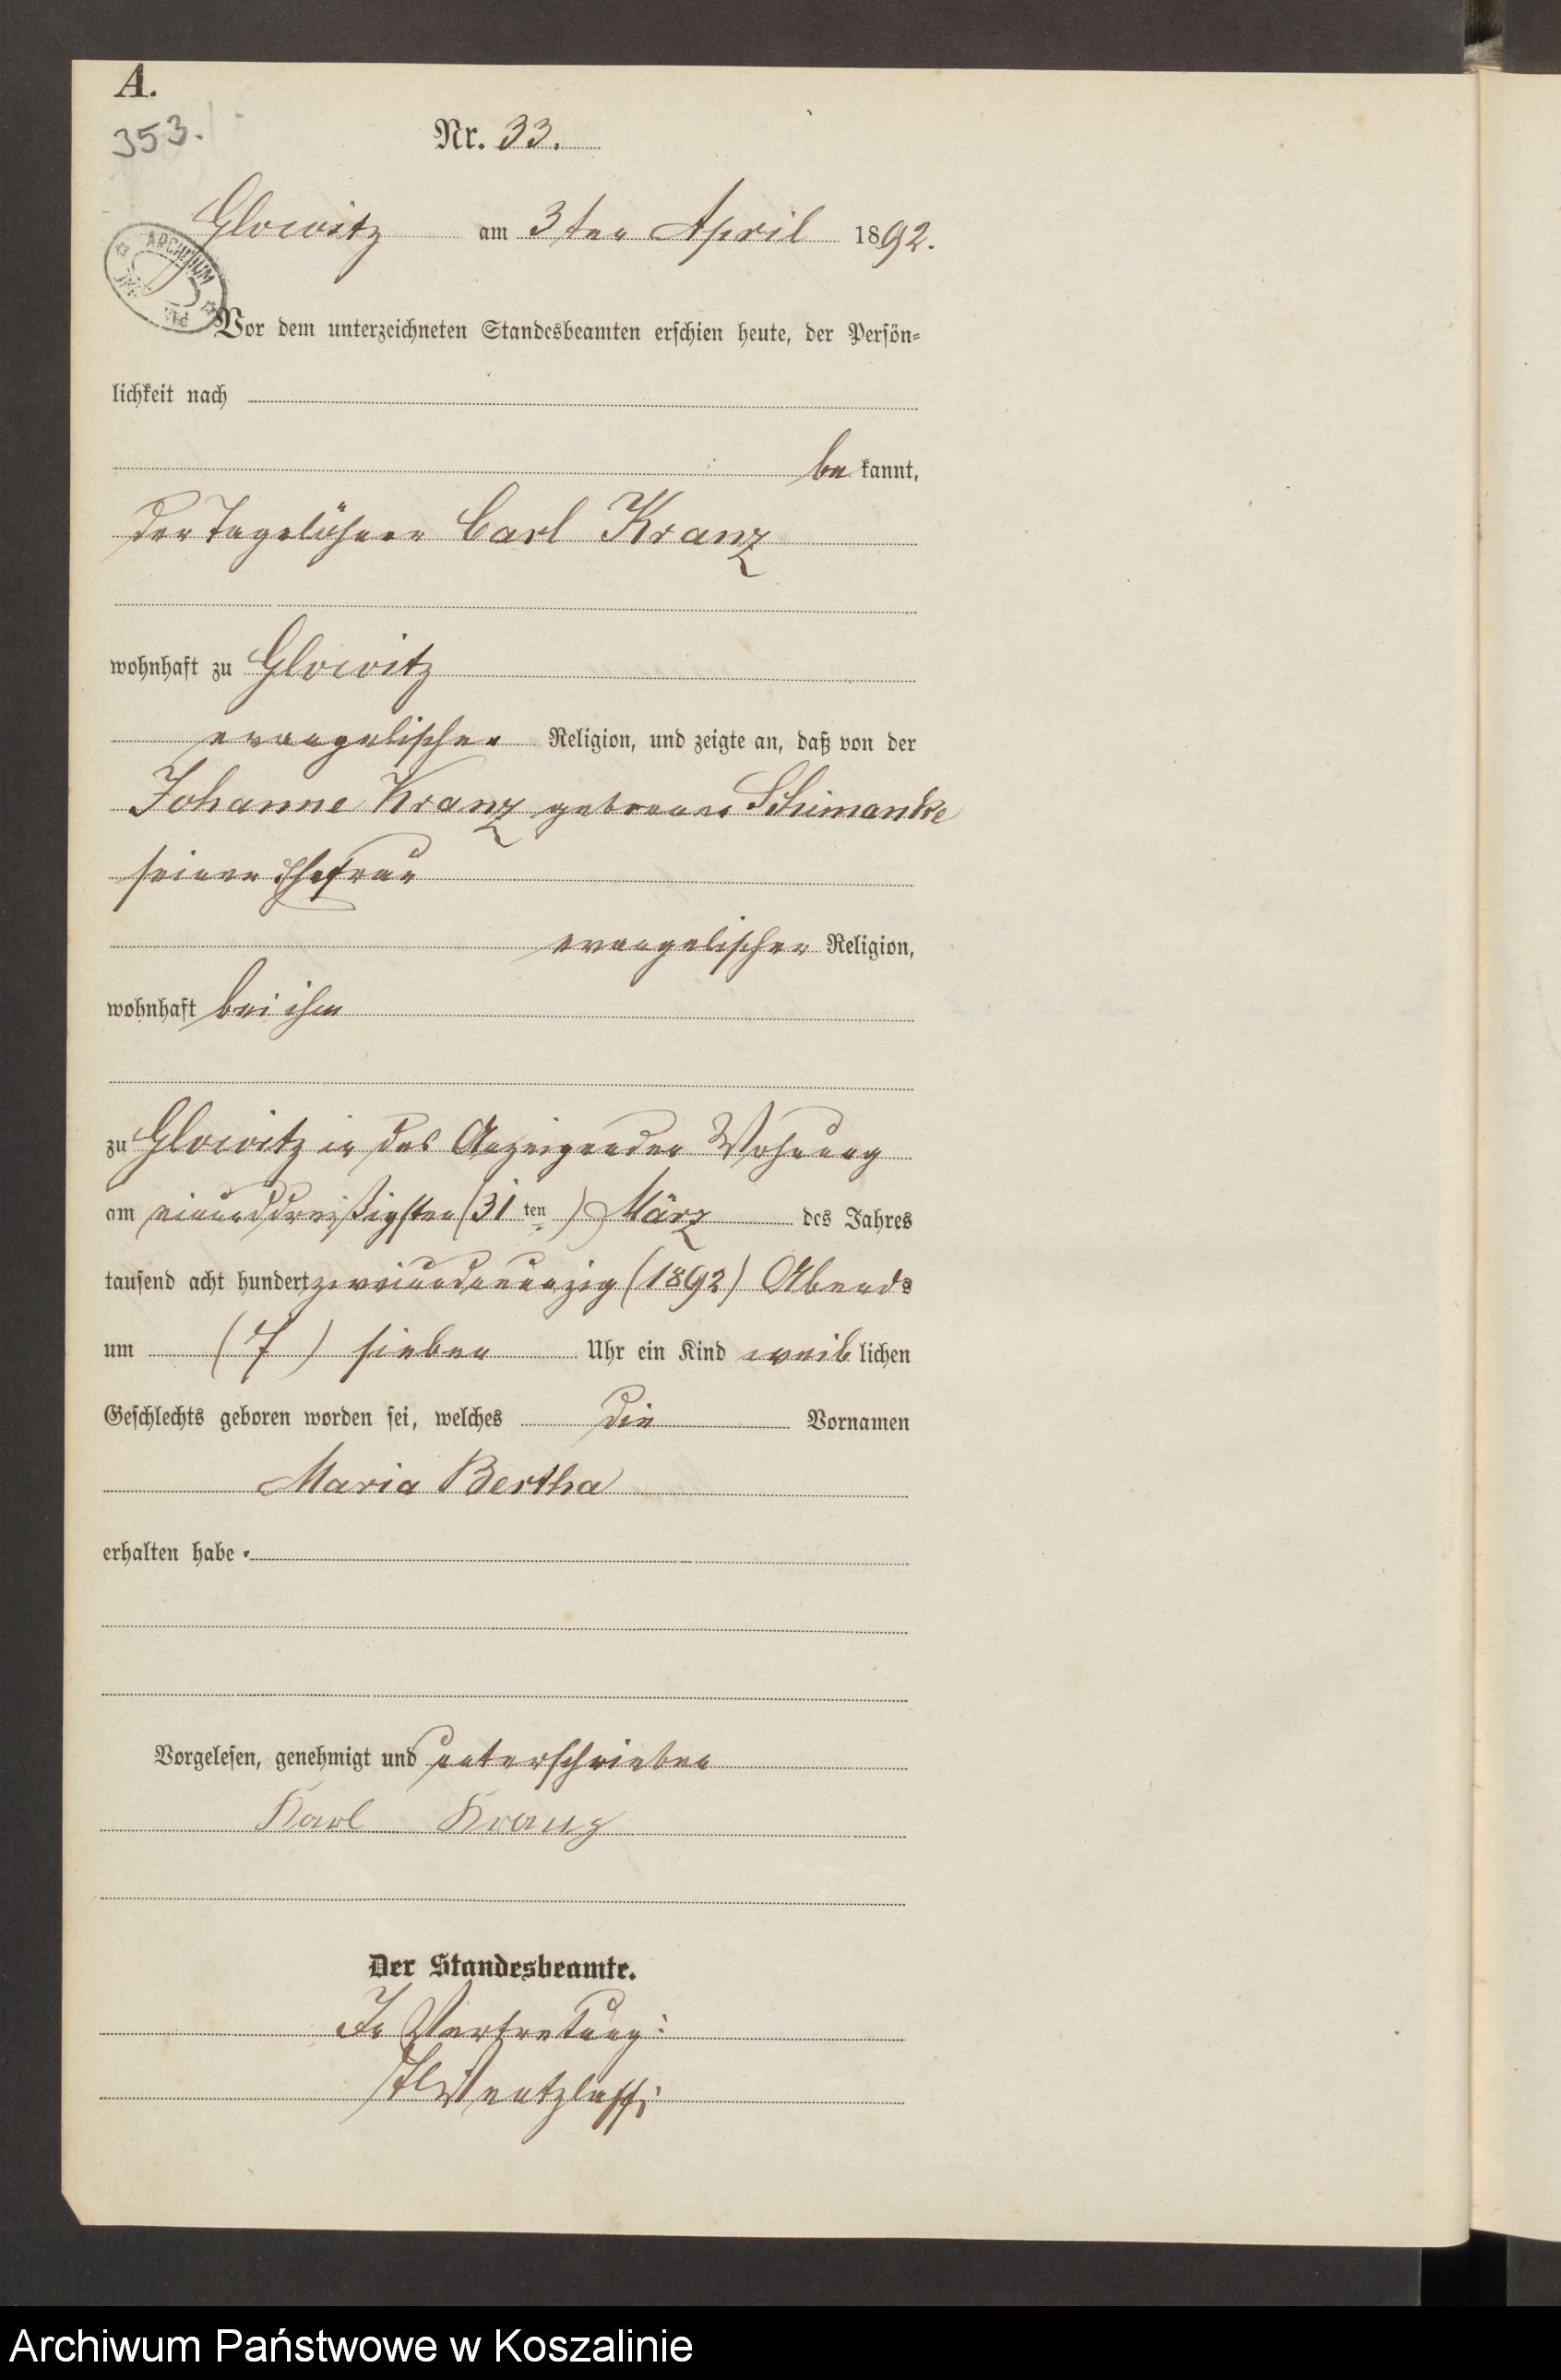 A.
353.
Nr. 33.
Glowitz am 3ten April 1892.
ARCHIWUM
Vor dem unterzeichneten Standesbeamten erschien heute, der Persön-
lichkeit nach
be kannt,
der Tagelöhner Carl Kranz
wohnhaft zu Glowitz
evangelischer Religion, und zeigte an, daß von der
Johanne Kranz geborene Schimanke
seiner Ehefrau
evangelischer Religion,
wohnhaft bei ihm
zu Glowitz in des Anzeigenden Wohnung
am einunddreißigsten (31 ten) März des Jahres
tausend acht hundert zweiundneunzig (1892) Abends
um (7) sieben Uhr ein Kind weiblichen
Geschlechts geboren worden sei, welches die Vornamen
Maria Bertha
erhalten habe.
Vorgelesen, genehmigt und unterschrieben
Karl Kranz
Der Standesbeamte.
In Vertretung:
Wentzlaff.
Archiwum Państwowe w Koszalinie